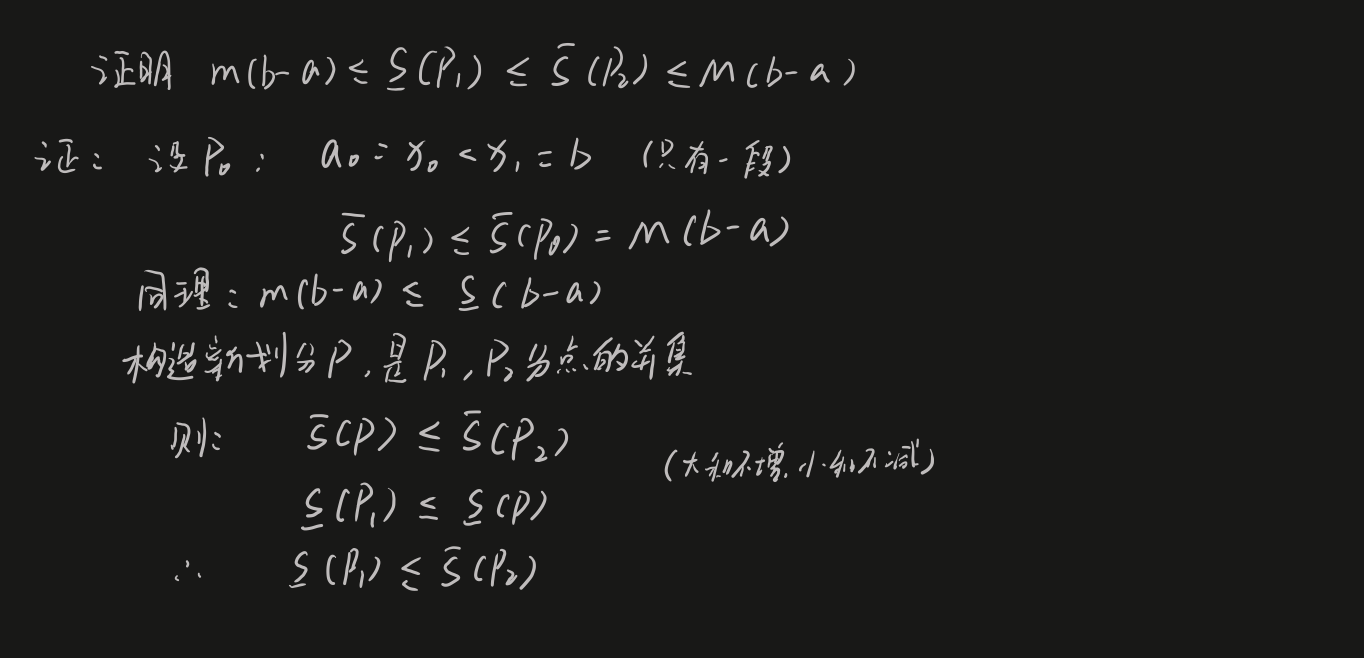 证明 m(b-a) ≤ S̲(P₁) ≤ S̄(P₂) ≤ M(b-a)
证: 设P₀: a₀ = x₀ < x₁ = b (只有一段)
S̄(P₁) ≤ S̄(P₀) = M(b-a)
同理: m(b-a) ≤ S̲(b-a)
构造新划分P, 是P₁, P₂分点的并集
则: S̄(P) ≤ S̄(P₂) (大和不增, 小和不减)
S̲(P₁) ≤ S̲(P)
∴ S̲(P₁) ≤ S̄(P₂)